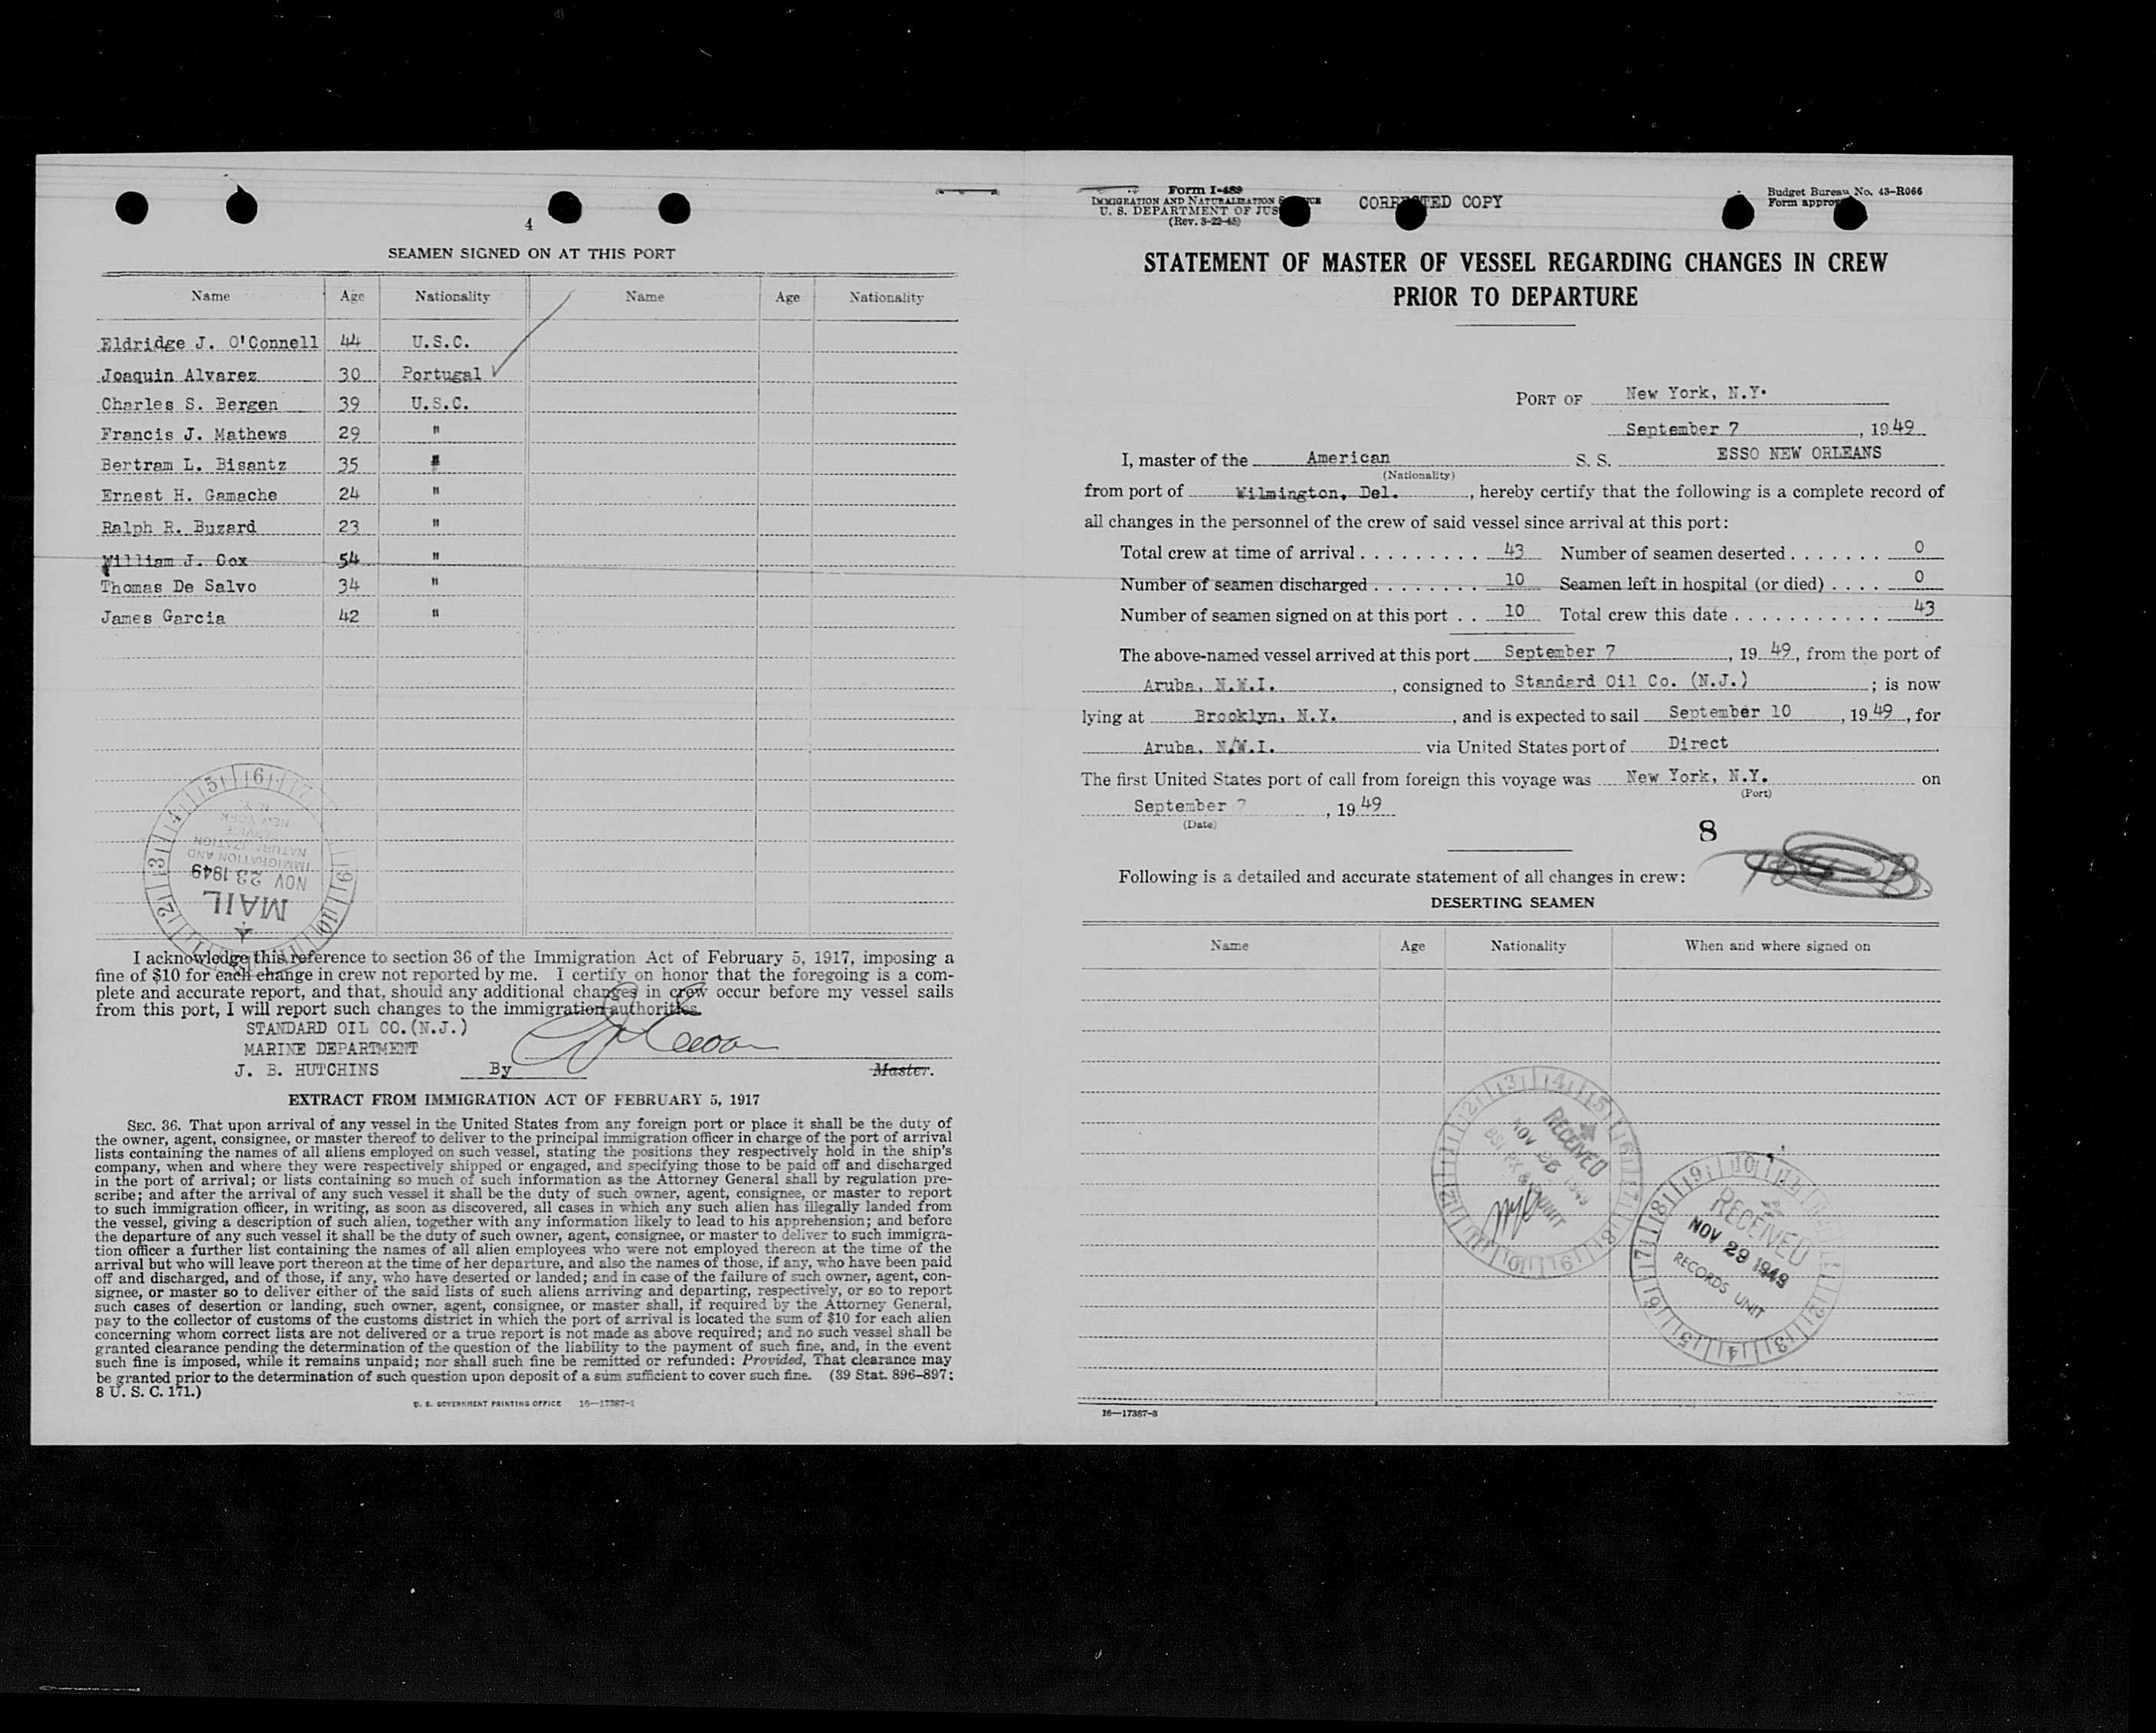 4
SEAMEN SIGNED ON AT THIS PORT
Name Age Nationality Name Age Nationality
Eldridge J. O'Connell 44 U.S.C.
Joaquin Alvarez 30 Portugal
Charles S. Bergen 39 U.S.C.
Francis J. Mathews 29 "
Bertram L. Bisantz 35 "
Ernest H. Gamache 24 "
Ralph R. Buzard 23 "
William J. Cox 54 "
Thomas De Salvo 34 "
James Garcia 42 "
NEW YORK
IMMIGRATION AND
NOV 23 1949
MAIL
I acknowledge this reference to section 36 of the Immigration Act of February 5, 1917, imposing a
fine of $10 for each change in crew not reported by me. I certify on honor that the foregoing is a com-
plete and accurate report, and that, should any additional changes in crew occur before my vessel sails
from this port, I will report such changes to the immigration authorities.
STANDARD OIL CO.(N.J.)
MARINE DEPARTMENT
J. B. HUTCHINS By Master.
EXTRACT FROM IMMIGRATION ACT OF FEBRUARY 5, 1917
SEC. 36. That upon arrival of any vessel in the United States from any foreign port or place it shall be the duty of
the owner, agent, consignee, or master thereof to deliver to the principal immigration officer in charge of the port of arrival
lists containing the names of all aliens employed on such vessel, stating the positions they respectively hold in the ship's
company, when and where they were respectively shipped or engaged, and specifying those to be paid off and discharged
in the port of arrival; or lists containing so much of such information as the Attorney General shall by regulation pre-
scribe; and after the arrival of any such vessel it shall be the duty of such owner, agent, consignee, or master to report
to such immigration officer, in writing, as soon as discovered, all cases in which any such alien has illegally landed from
the vessel, giving a description of such alien, together with any information likely to lead to his apprehension; and before
the departure of any such vessel it shall be the duty of such owner, agent, consignee, or master to deliver to such immigra-
tion officer a further list containing the names of all alien employees who were not employed thereon at the time of the
arrival but who will leave port thereon at the time of her departure, and also the names of those, if any, who have been paid
off and discharged, and of those, if any, who have deserted or landed; and in case of the failure of such owner, agent, con-
signee, or master so to deliver either of the said lists of such aliens arriving and departing, respectively, or so to report
such cases of desertion or landing, such owner, agent, consignee, or master shall, if required by the Attorney General,
pay to the collector of customs of the customs district in which the port of arrival is located the sum of $10 for each alien
concerning whom correct lists are not delivered or a true report is not made as above required; and no such vessel shall be
granted clearance pending the determination of the question of the liability to the payment of such fine, and, in the event
such fine is imposed, while it remains unpaid; nor shall such fine be remitted or refunded: Provided, That clearance may
be granted prior to the determination of such question upon deposit of a sum sufficient to cover such fine. (39 Stat. 896–897;
8 U. S. C. 171.)
U. S. GOVERNMENT PRINTING OFFICE 16—17387-1
Form I-489
IMMIGRATION AND NATURALIZATION
U. S. DEPARTMENT OF JUS
(Rev. 3-22-45)
CORRECTED COPY
Budget Bureau No. 43-R066
Form approv
STATEMENT OF MASTER OF VESSEL REGARDING CHANGES IN CREW
PRIOR TO DEPARTURE
PORT OF New York, N.Y.
September 7, 1949
I, master of the American S. S. ESSO NEW ORLEANS
(Nationality)
from port of Wilmington, Del., hereby certify that the following is a complete record of
all changes in the personnel of the crew of said vessel since arrival at this port:
Total crew at time of arrival . . . . . . . . . . 43 Number of seamen deserted . . . . . . . 0
Number of seamen discharged . . . . . . . . 10 Seamen left in hospital (or died) . . . . 0
Number of seamen signed on at this port . . 10 Total crew this date . . . . . . . . . . . . 43
The above-named vessel arrived at this port September 7, 1949, from the port of
Aruba, N.W.I., consigned to Standard Oil Co. (N.J.); is now
lying at Brooklyn, N.Y., and is expected to sail September 10, 1949, for
Aruba, N.W.I. via United States port of Direct
The first United States port of call from foreign this voyage was New York, N.Y. on
(Port)
September 7, 1949
(Date)
8
Following is a detailed and accurate statement of all changes in crew:
DESERTING SEAMEN
Name Age Nationality When and where signed on
RECEIVED
NOV 28 1949
UNIT
RECEIVED
NOV 29 1949
RECORDS UNIT
16—17387-3